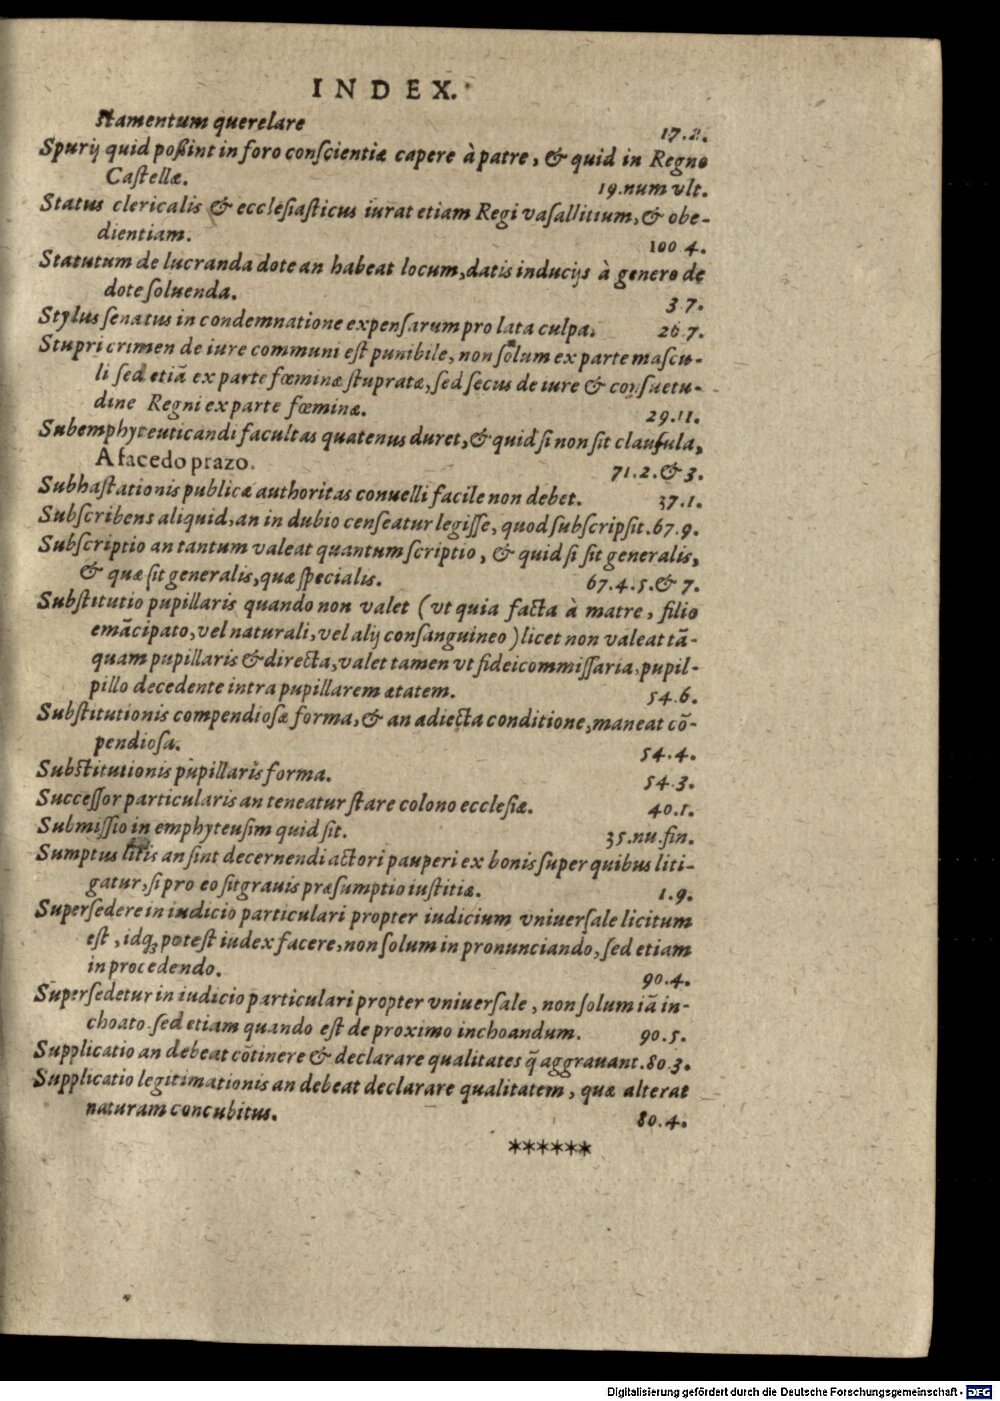 INDEX.
stamentum querelare 17.2.
Spurij quid poßint in foro conſcientiæ capere à patre, & quid in Regno
Caſtellæ. 19.num vlt.
Status clericalis & eccleſiaſticus iurat etiam Regi vaſallitium, & obe-
dientiam. 100 4.
Statutum de lucranda dote an habeat locum, datis inducijs à genero de
dote ſoluenda. 3 7.
Stylus ſenatus in condemnatione expenſarum pro lata culpa. 26.7.
Stupri crimen de iure communi eſt punibile, non ſolum ex parte maſcu-
li ſed etiā ex parte fœminæ ſtupratæ, ſed ſecus de iure & conſuetu-
dine Regni ex parte fœminæ. 29.11.
Subemphyteuticandi facultas quatenus duret, & quid ſi non ſit clauſula,
A facedo prazo. 71.2.& 3.
Subhaſtationis publicæ authoritas conuelli facile non debet. 37.1.
Subſcribens aliquid, an in dubio cenſeatur legiſſe, quod ſubſcripſit. 67.9.
Subſcriptio an tantum valeat quantum ſcriptio, & quid ſi ſit generalis,
& quæ ſit generalis, quæ ſpecialis. 67.4.5.& 7.
Subſtitutio pupillaris quando non valet (vt quia facta à matre, filio
emācipato, vel naturali, vel alij conſanguineo) licet non valeat tā-
quam pupillaris & directa, valet tamen vt fideicommiſſaria, pupil-
pillo decedente intra pupillarem ætatem. 54.6.
Subſtitutionis compendioſæ forma, & an adiecta conditione, maneat cō-
pendioſa. 54.4.
Subſtitutionis pupillaris forma. 54.3.
Succeſſor particularis an teneatur ſtare colono eccleſiæ. 40.1.
Submiſſio in emphyteuſim quid ſit. 35.nu.fin.
Sumptus litis an ſint decernendi actori pauperi ex bonis ſuper quibus liti-
gatur, ſi pro eo ſit grauis præſumptio iuſtitiæ. 1.9.
Superſedere in iudicio particulari propter iudicium vniuerſale licitum
eſt, idq; poteſt iudex facere, non ſolum in pronunciando, ſed etiam
in procedendo. 90.4.
Superſedetur in iudicio particulari propter vniuerſale, non ſolum iā in-
choato. ſed etiam quando eſt de proximo inchoandum. 90.5.
Supplicatio an debeat cōtinere & declarare qualitates q̄ aggrauant. 80 3.
Supplicatio legitimationis an debeat declarare qualitatem, quæ alterat
naturam concubitus. 80.4.
******
Digitalisierung gefördert durch die Deutsche Forschungsgemeinschaft - DFG